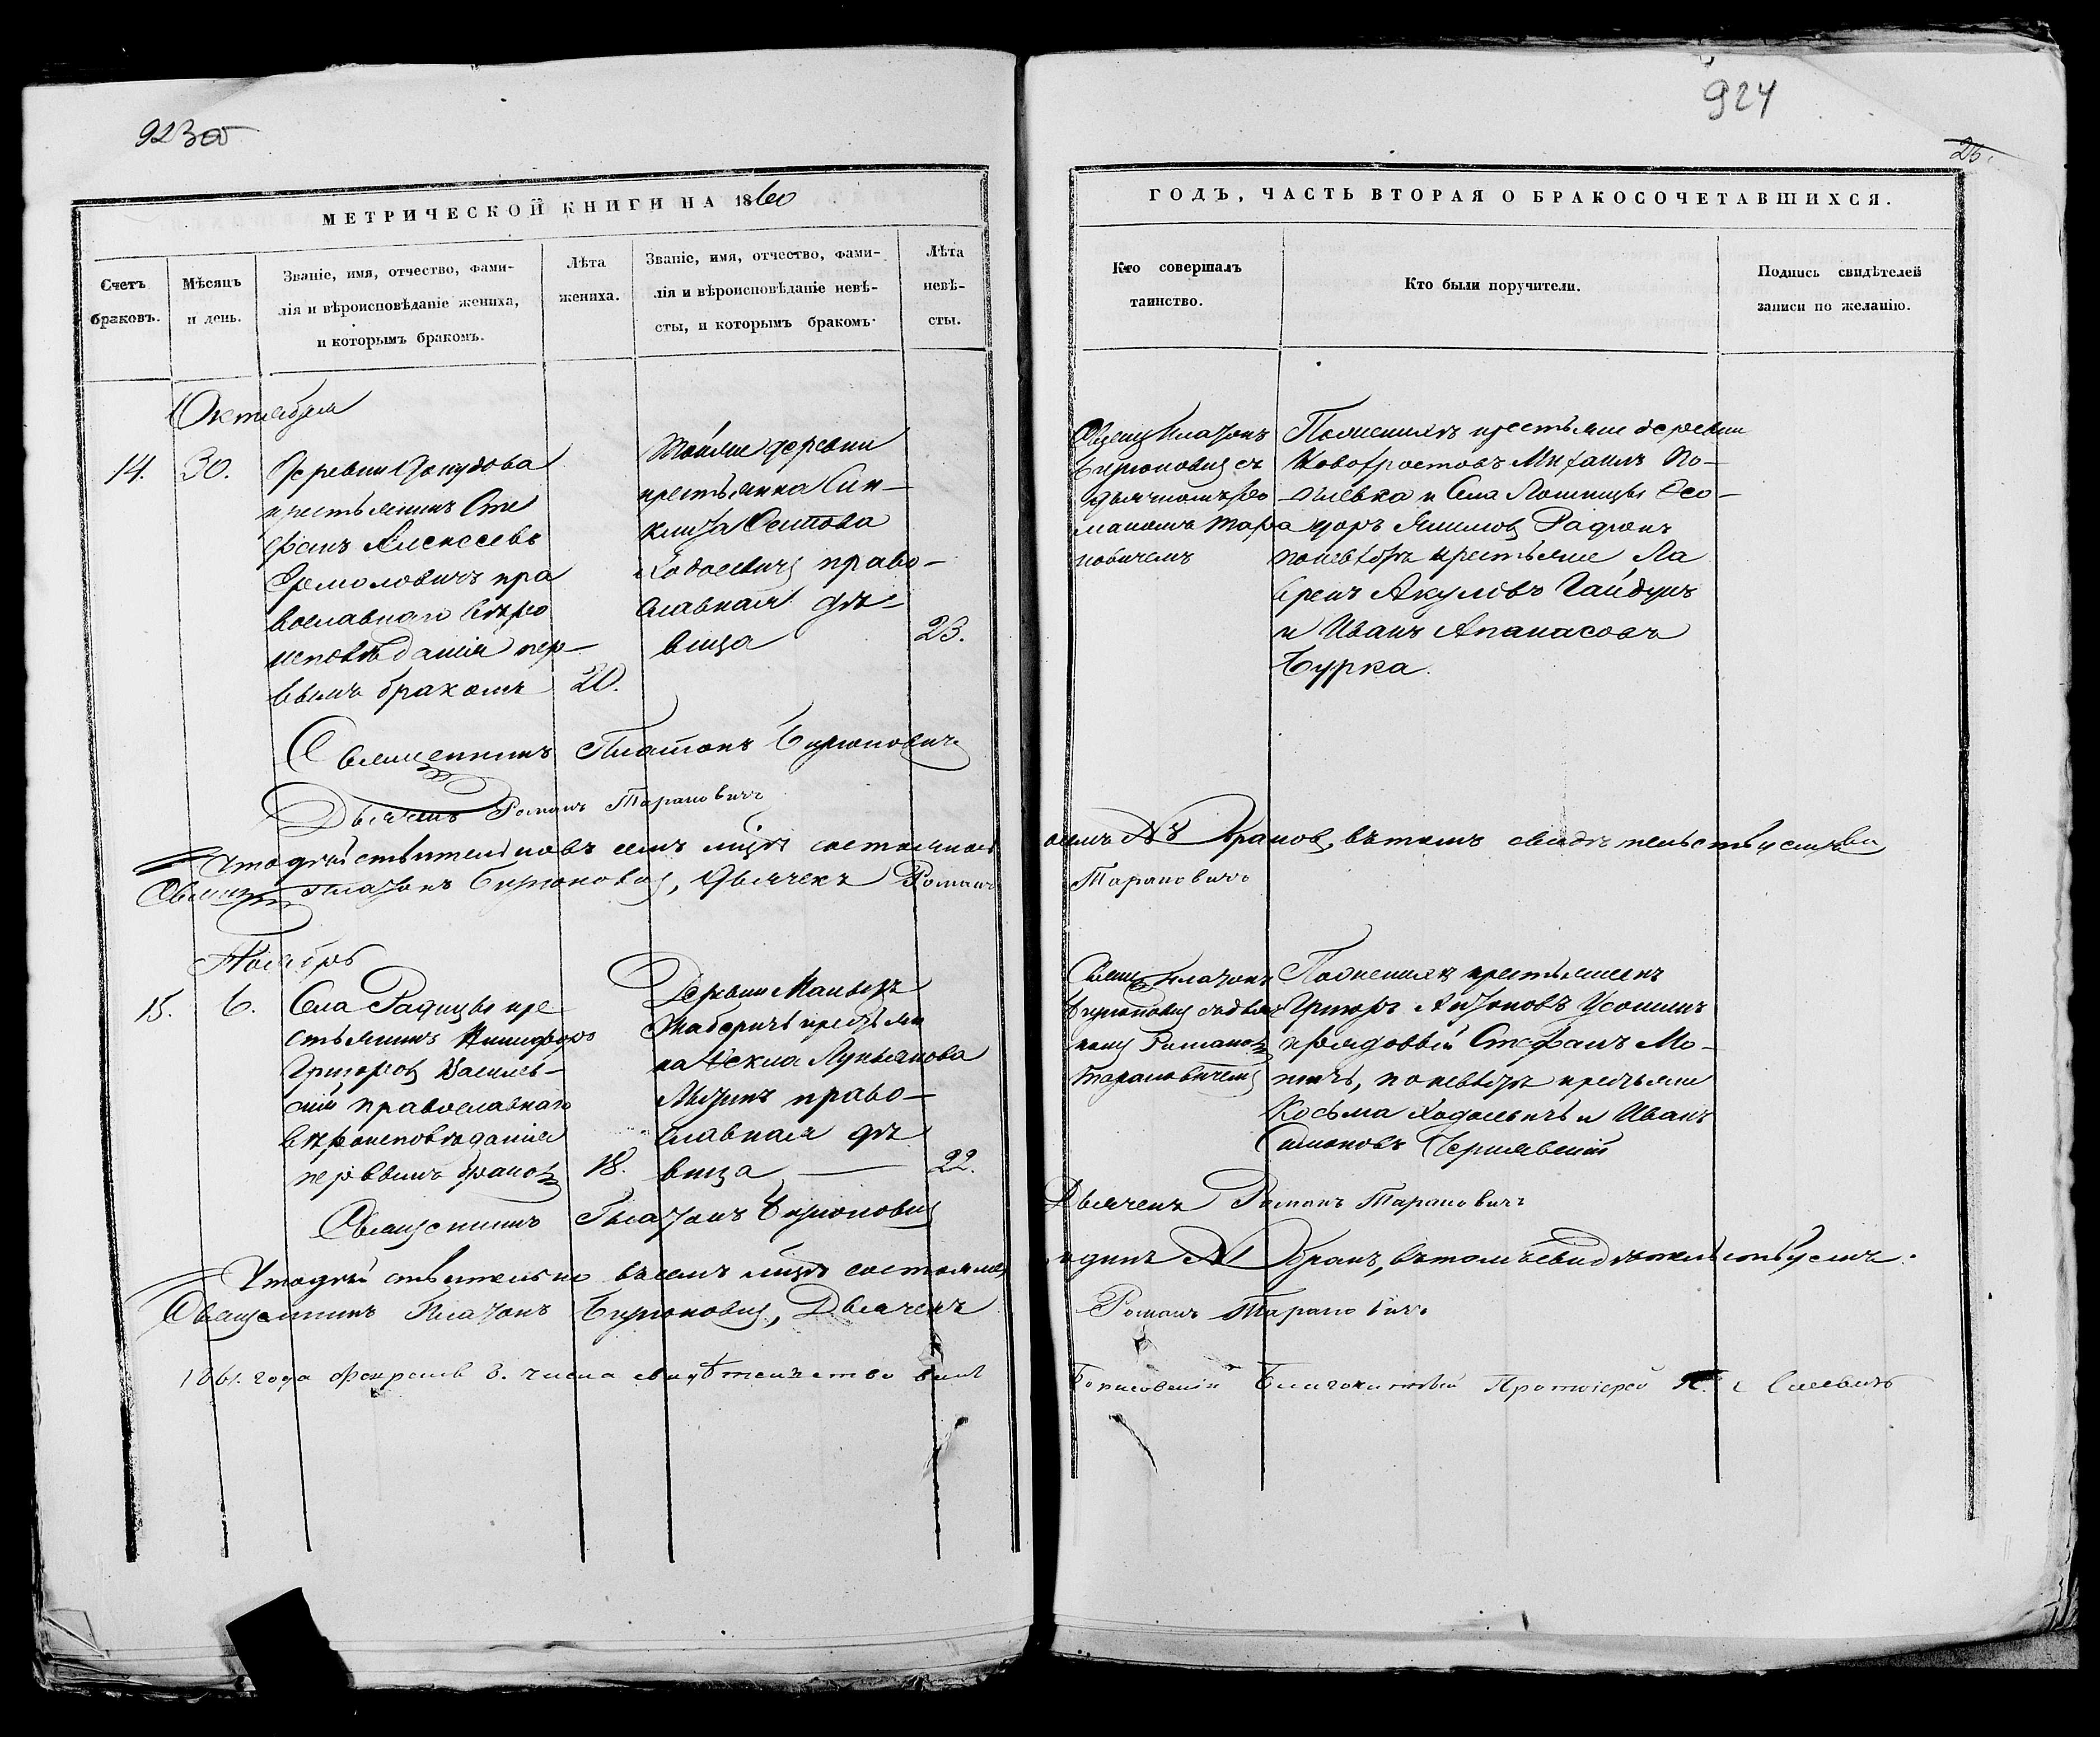 923об
924
26.
МЕТРИЧЕСКОЙ КНИГИ НА 1860
ГОДЪ, ЧАСТЬ ВТОРАЯ О БРАКОСОЧЕТАВШИХСЯ.
Счетъ
браковъ.
Мѣсяцъ
и день.
Званіе, имя, отчество, фами-
лія и вѣроисповѣданіе жениха,
и которымъ бракомъ.
Лѣта
жениха.
Званіе, имя, отчество, фами-
лія и вѣроисповѣданіе невѣ-
сты, и которымъ бракомъ.
Лѣта
невѣ-
сты.
Кто совершалъ
таинство.
Кто были поручители.
Подпись свидѣтелей
записи по желанію.
Октября
14.
30.
Деревни Докудова
крестьянинъ Сте
фанъ Алексеевъ
Ермоловичъ пра
вославнаго вѣро
исповѣданія пер-
вымъ бракомъ
20.
Тойже деревни
крестьянка Син-
клита
Ходосевичъ право-
славная дѣ-
вица
23.
Священ Платонъ
Бирюковичъ съ
дьячкомъ Ро
маномъ Тара
новичемъ
По женихѣ крестьяне деревни
Михаилъ По-
и Села Лошницы Ѳео-
доръ Якимовъ Радюкъ
по невѣстѣ крестьяне Ла
вренъ Акуловъ Гайдукъ
и Иванъ Апанасовъ
Бурка.
Священникъ Платонъ Бирюковичъ
Дьячекъ Романъ Тарановичъ
Что действительно въ семъ мцѣ состоялось
осемь № 8 браковъ, въ томъ свидѣтельствуемъ
Священ Платонъ Бирюковичъ, Дьячекъ Романъ
Тарановичъ
Ноябрь
15.
6.
Села Радицы кре
стьянинъ Никифоръ
Григорьевъ Василев-
скій православнаго
вѣроисповѣданія
первымъ бракомъ
18.
Деревни
крестьян
ка Ѳекла Лукьянова
право-
славная дѣ
вица
22.
Священ Платонъ
Бирюковичъ съ дьяч
комъ Романомъ
Тарановичемъ
По женихѣ крестьянинъ
Григоръ Антоновъ
и рядовый Стефанъ Мо-
по невѣстѣ крестьяне
Косьма Ходосевичъ и Иванъ
Симоновъ Чернявскій
Священникъ Платонъ Бирюковичъ
Дьячекъ Романъ Тарановичъ
Что действительно въ семъ мцѣ состоялся
одинъ № 1 бракъ, въ томъ свидѣтельствуемъ.
Священникъ Платонъ Бирюковичъ, Дьячекъ
Романъ Тарановичъ.
1861. года Февраля 8. числа свидѣтельствовалъ
Борисовскій Благочинный Протоіерей